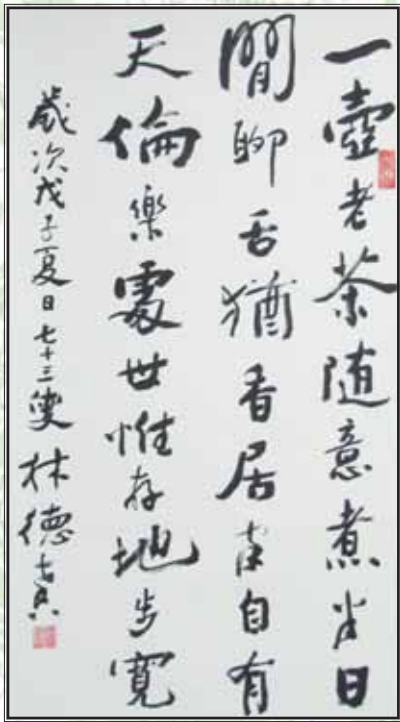 一壺老茶随意煮半日
閒聊舌猶香居家自有
天倫樂處世惟存地步寬
歲次戊子夏日七十三叟林德